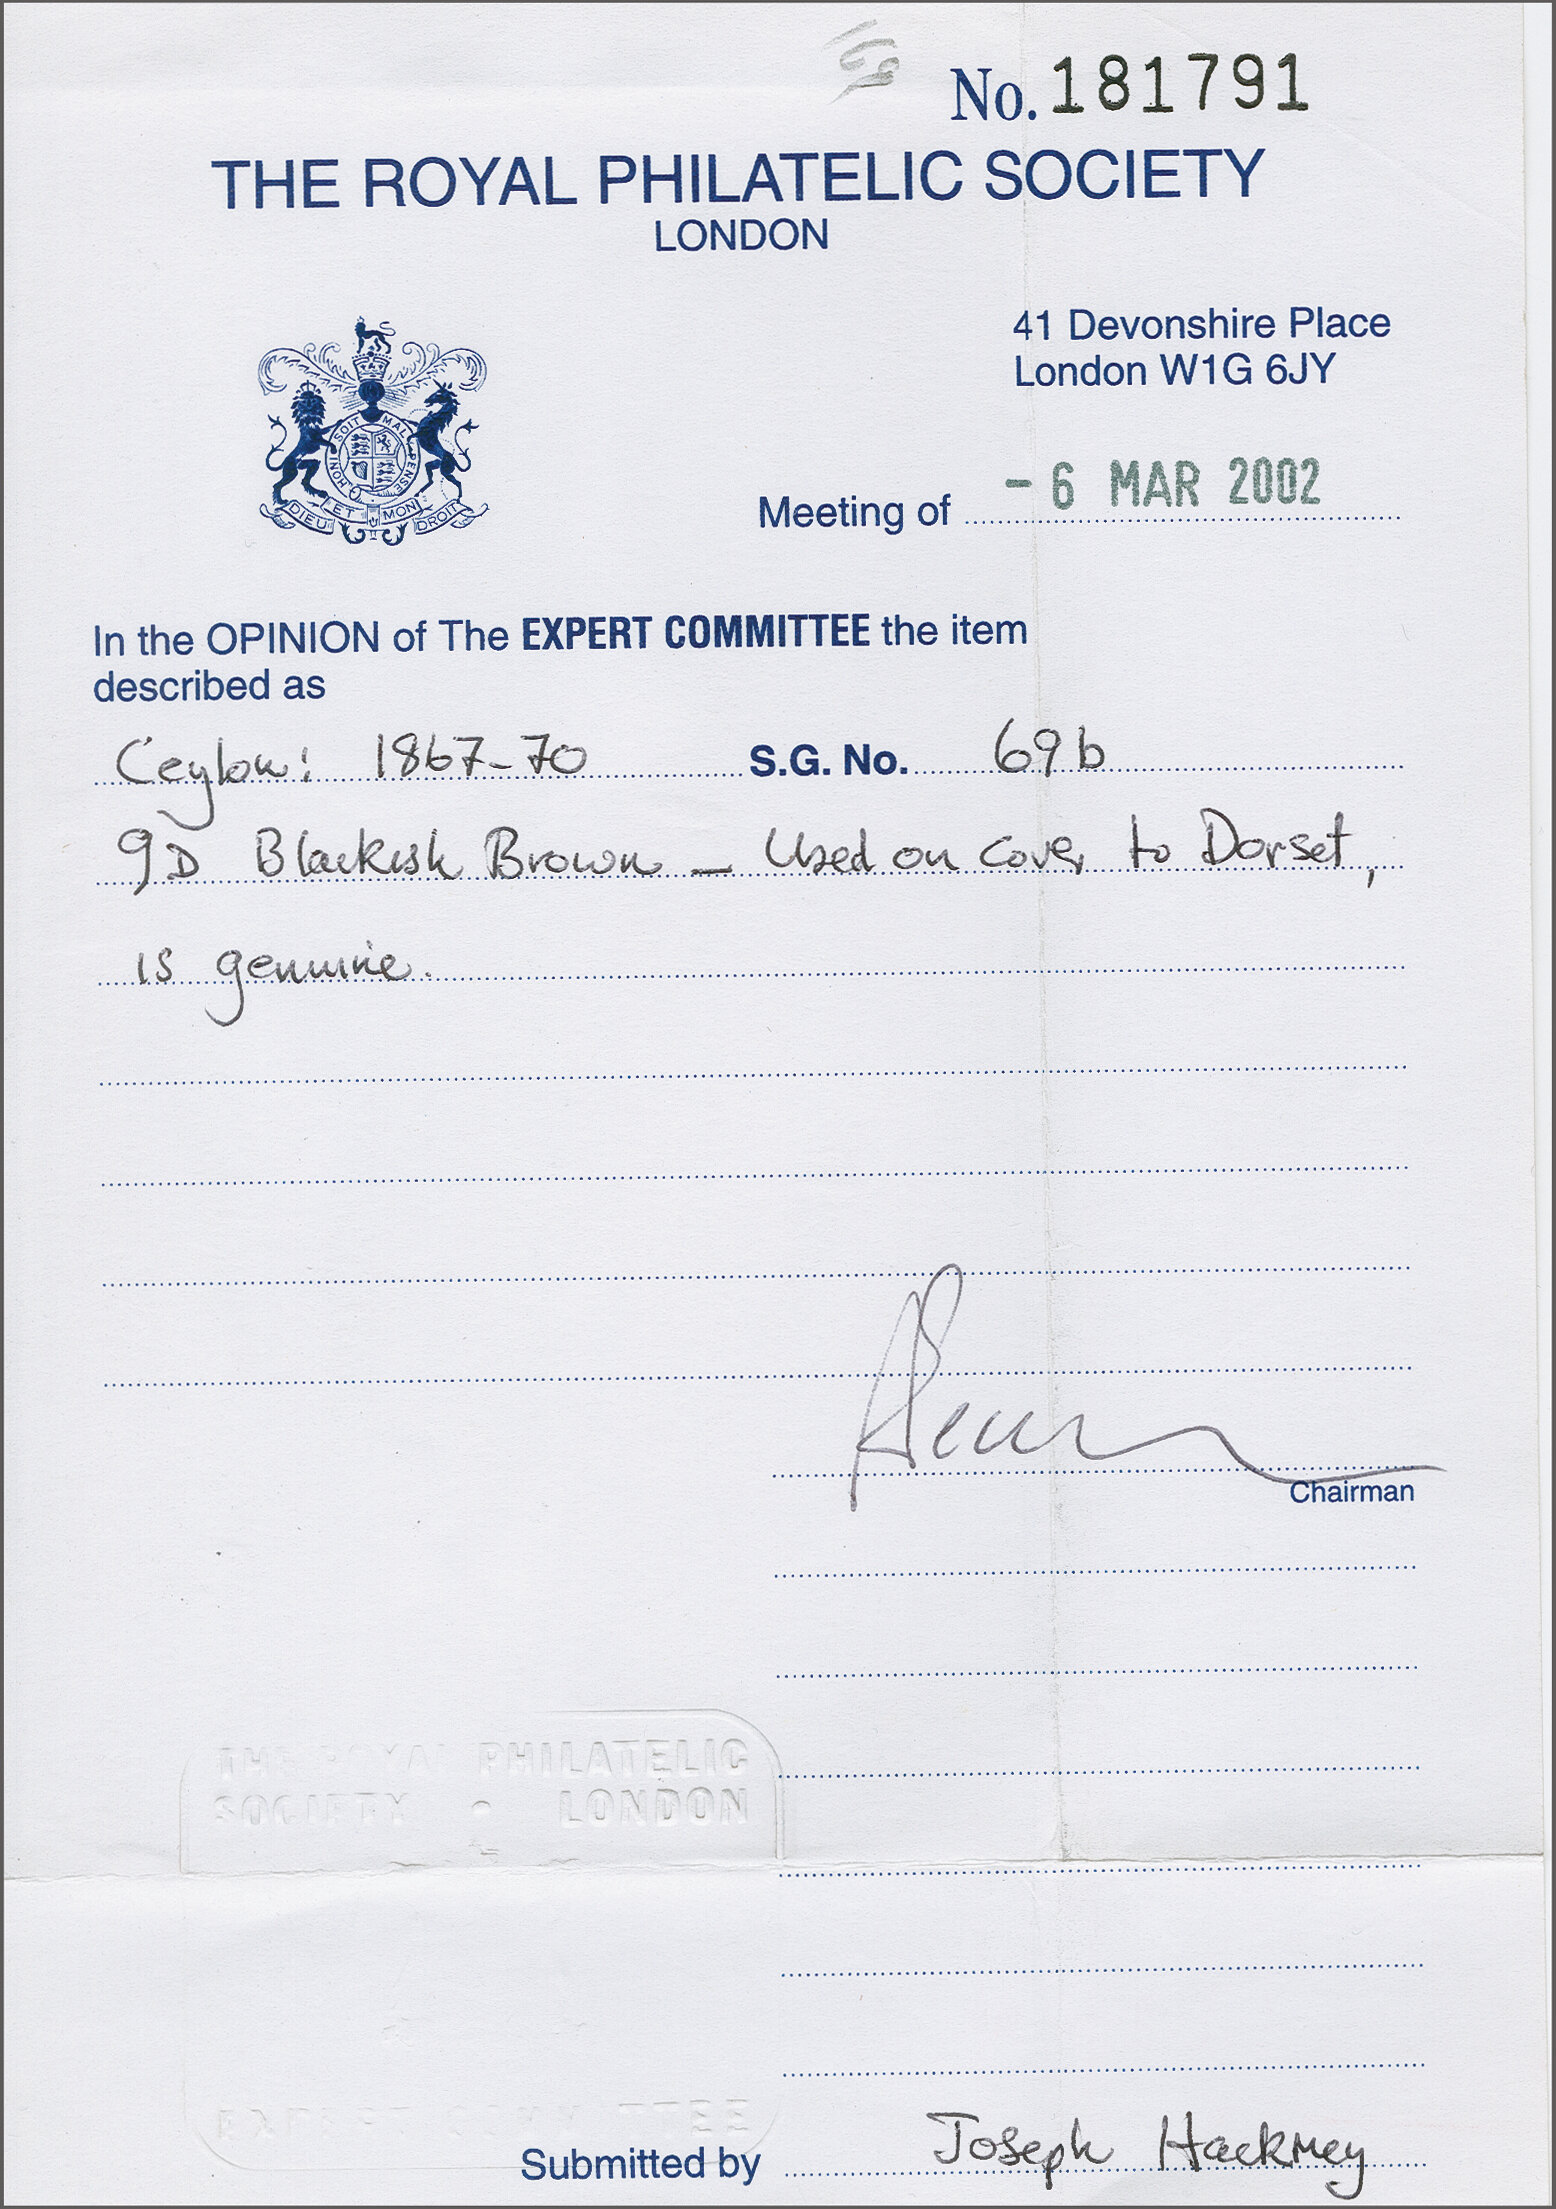 No. 181791
THE ROYAL PHILATELIC SOCIETY
LONDON
41 Devonshire Place
London W1G 6JY
HONI SOIT MAL PENSE
DIEU ET MON DROIT
Meeting of - 6 MAR 2002
In the OPINION of The EXPERT COMMITTEE the item
described as
Ceylon: 1867-70 S.G. No. 69b
9D Blackish Brown — Used on cover to Dorset,
is genuine.
Chairman
THE ROYAL PHILATELIC
SOCIETY • LONDON
EXPERT COMMITTEE
Submitted by Joseph Hackmey